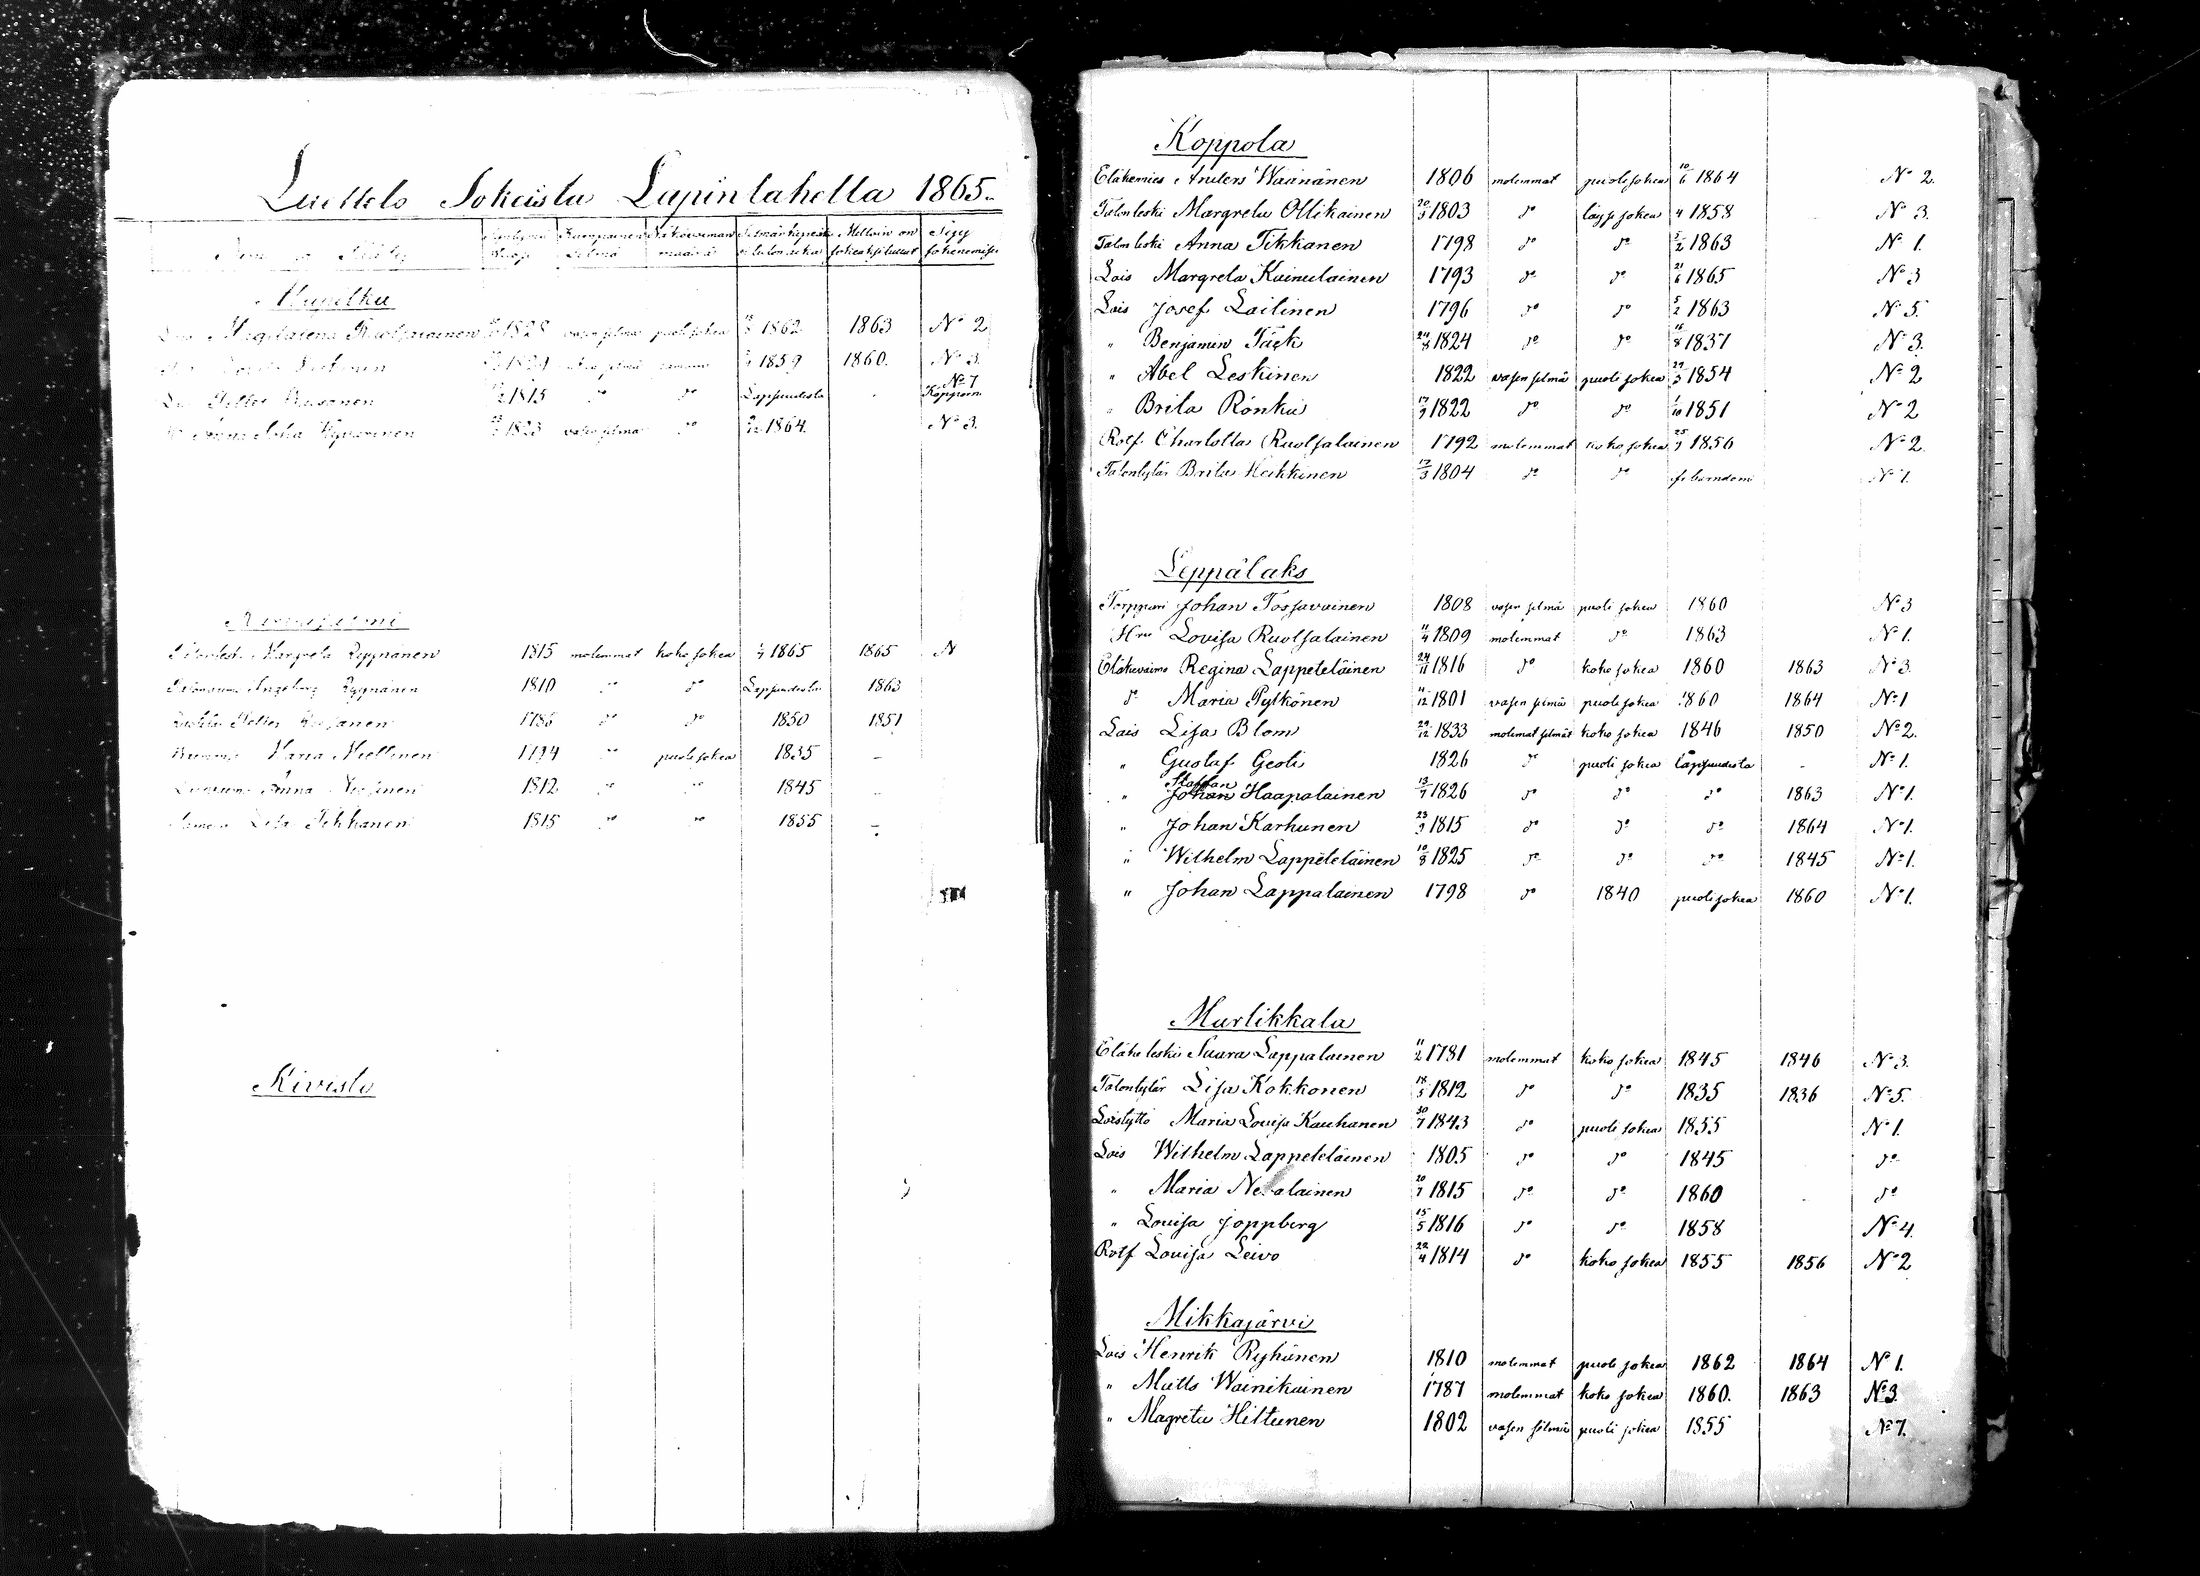 Luettelo Sokeista Lapinlahella 1865.
Nimi ja Sääty Syntymä Kumpainen silmä Näkövoiman määrä Silmänkipeän Milloin on sokeaksi tullut Syy sokenemisse
Magdalena Ruotsalainen 1828 vasen silmä puoli sokea 1862 1863 No 2
silmä 1859 1860. No 3.
No 7
Petter Rusanen 1815 do Lappuudesta
Anna 1823 vasen silmä do 1864. No 3.
Margreta Ryynänen 1815 molemmat koko sokea 1865 1865 N
Ingeborg Ryynänen 1810 do Lapsuudesta 1863
Petter 1785 do do 1850 1851
Maria Miettinen 1794 puoli sokea 1835 –
Anna 1812 1845
Lisa Tikkanen 1815 1855 –
Kivisto
Koppola
Eläkemies Anders Waananen 1806 molemmat puoli sokea 10/6 1864 No 2.
Talonleski Margreta Ollikainen 20/3 1803 do läpp sokea 4 1858 No 3.
Talonleski Anna Tikkanen 1798 do do 2 1863 No 1.
Lois Margreta Kainulainen 1793 do do 21/6 1865 No 3
Lois Josef Laitinen 1796 do do 5/2 1863 No 5.
" Benjamin Täck 24/8 1824 do do 16/8 1837 No 3.
" Abel Leskinen 1822 vasen silmä puoli sokea 29/3 1854 No 2
" Brita Rönkä 17/9 1822 do do 1/10 1851 No 2
Rotf. Charlotta Ruotsalainen 1792 molemmat koko sokea 25/7 1856 No 2
Talontytär Brita Heikkinen 17/3 1804 do do fr barndom No 7.
Leppälaks
Torppari Johan Tossavainen 1808 vasen silmä puoli sokea 1860 No 3
Hra Lovisa Ruotsalainen 11/4 1809 molemmat do 1863 No 1.
Eläkevaimo Regina Lappeteläinen 24/11 1816 do koko sokea 1860 1863 No 3.
do Maria Pytkönen 11/12 1801 vasen silmä puoli sokea 1860 1864 No 1
Lois Lisa Blom 29/12 1833 molemat silmät koko sokea 1846 1850 No 2.
" Gustaf Geoli 1826 do puoli sokea lapsuudesta - No 1.
Staffan
" Johan Haapalainen 13/7 1826 do do do 1863 No 1.
" Johan Karhunen 23/9 1815 do do do 1864 No 1.
" Wilhelm Lappeteläinen 10/8 1825 do do do 1845 No 1.
" Johan Lappalainen 1798 do 1840 puoli sokea 1860 No 1.
Martikkala
Eläkeleski Saara Lappalainen 11/2 1781 molemmat koko sokea 1845 1846 No 3.
Talontytär Lisa Kokkonen 18/5 1812 do do 1835 1836 No 5.
Loistyttö Maria Lovisa Kauhanen 30/7 1843 do puoli sokea 1855 No 1.
Lois Wilhelm Lappeteläinen 1805 do do 1845 do
" Maria Nevalainen 20/7 1815 do do 1860 do
" Lovisa Joppberg 15/5 1816 do do 1858 No 4.
Rotf Lovisa Leivo 22/4 1814 do koko sokea 1855 1856 No 2
Mikkajärvi
Lois Henrik Ryhänen 1810 molemmat puoli sokea 1862 1864 No 1.
" Matts Wainikainen 1787 molemmat koko sokea 1860. 1863 No 3.
" Magreta Hiltunen 1802 vasen silmä puoli sokea 1855 No 7.